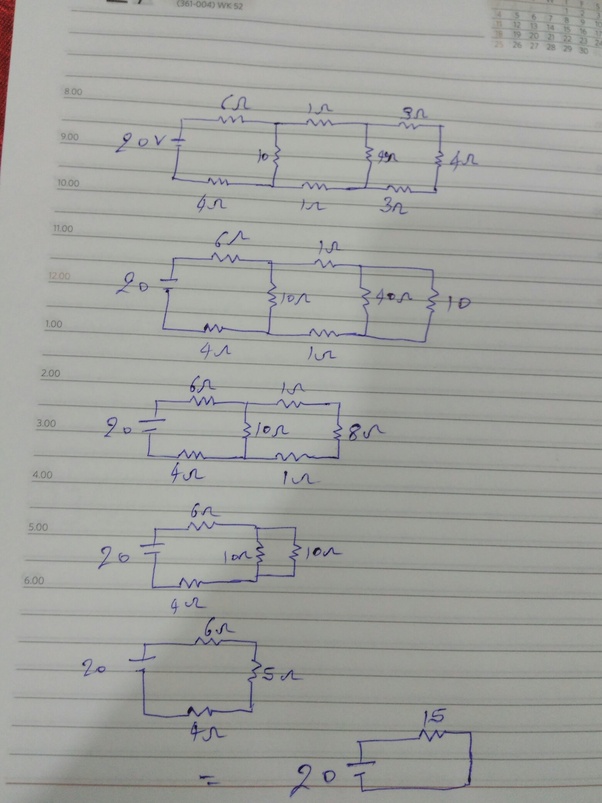 (361-004) WK 52
8.00
6Ω 1Ω 3Ω
9.00
20V 10 4Ω
10.00
4Ω 1Ω 3Ω
11.00
6Ω 1Ω
12.00
20 10Ω 40Ω 10
1.00
4Ω 1Ω
2.00
6Ω 1Ω
3.00
20 10Ω 8Ω
4.00
4Ω 1Ω
5.00
6Ω
20 10Ω 10Ω
6.00
4Ω
6Ω
20 5Ω
4Ω
15
= 20